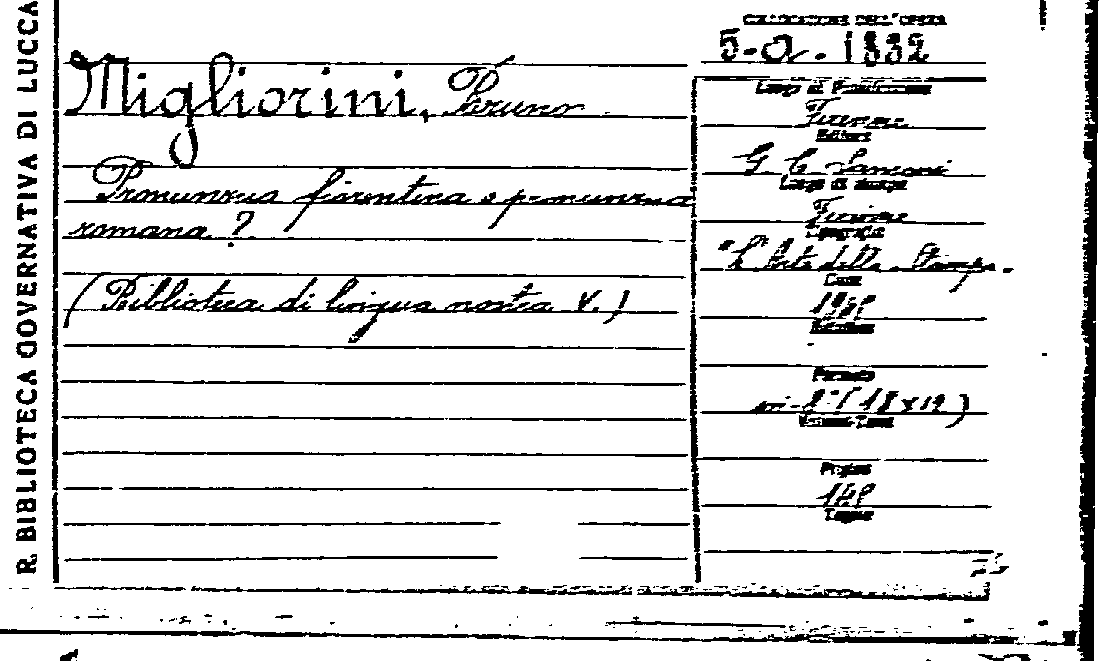 R. BIBLIOTECA GOVERNATIVA DI LUCCA
COLLOCAZIONE DELL'OPERA
5-a.-1332
Migliorini, Bruno
Pronunzia fiorentina e pronunzia
romana?
(Biblioteca di lingua nostra V.)
Luogo di Pubblicazione
Firenze
Editore
G. C. Sansoni
Luogo di stampa
Firenze
Tipografia
"L'Arte della Stampa.
Data
Edizione
Formato
(18x12)
Pagine
148